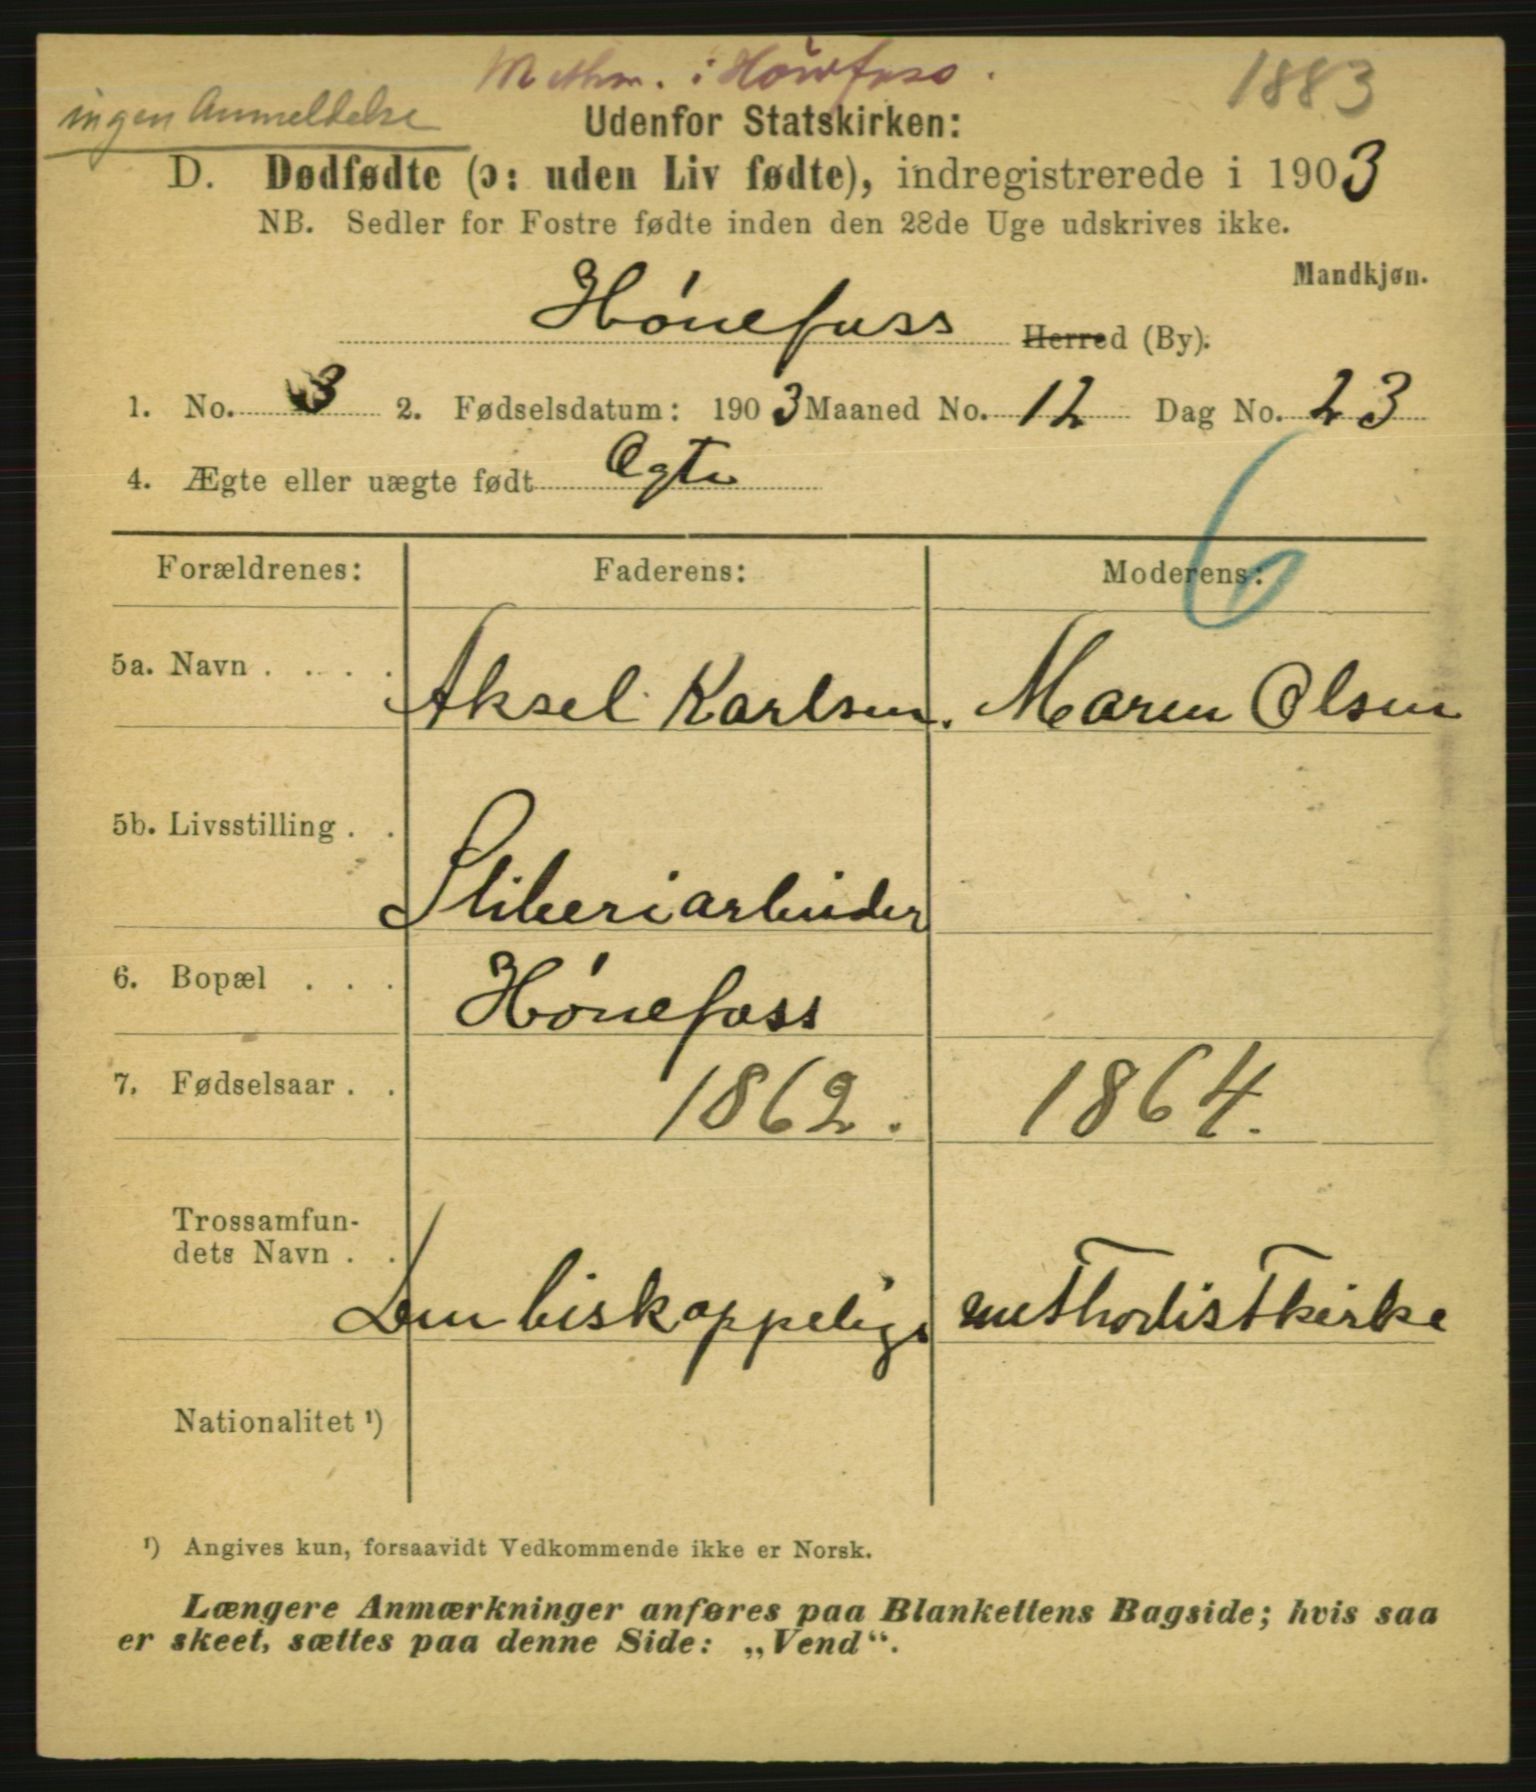 Methm. i Hønefoss.
1883
ingen Anmeldelse
Udenfor Statskirken:
D. Dødfødte (ɔ: uden Liv fødte), indregistrerede i 1903
NB. Sedler for Fostre fødte inden den 28de Uge udskrives ikke.
Mandkjøn.
Hónefoss Herred (By).
1. No. 3 2. Fødselsdatum: 1903 Maaned No. 12 Dag No. 23
4. Ægte eller uægte født Egte
6
Forældrenes: Faderens: Moderens:
5a. Navn . . . . Aksel Karlsen. Maren Olsen
5b. Livsstilling . . Sliberiarbeider
6. Bopæl . . . Hónefoss
7. Fødselsaar . . 1862. 1864.
Trossamfun-
dets Navn . . Den biskoppelige methodistkirke
Nationalitet ¹)
¹) Angives kun, forsaavidt Vedkommende ikke er Norsk.
Længere Anmærkninger anføres paa Blankettens Bagside; hvis saa
er skeet, sættes paa denne Side: „Vend“.